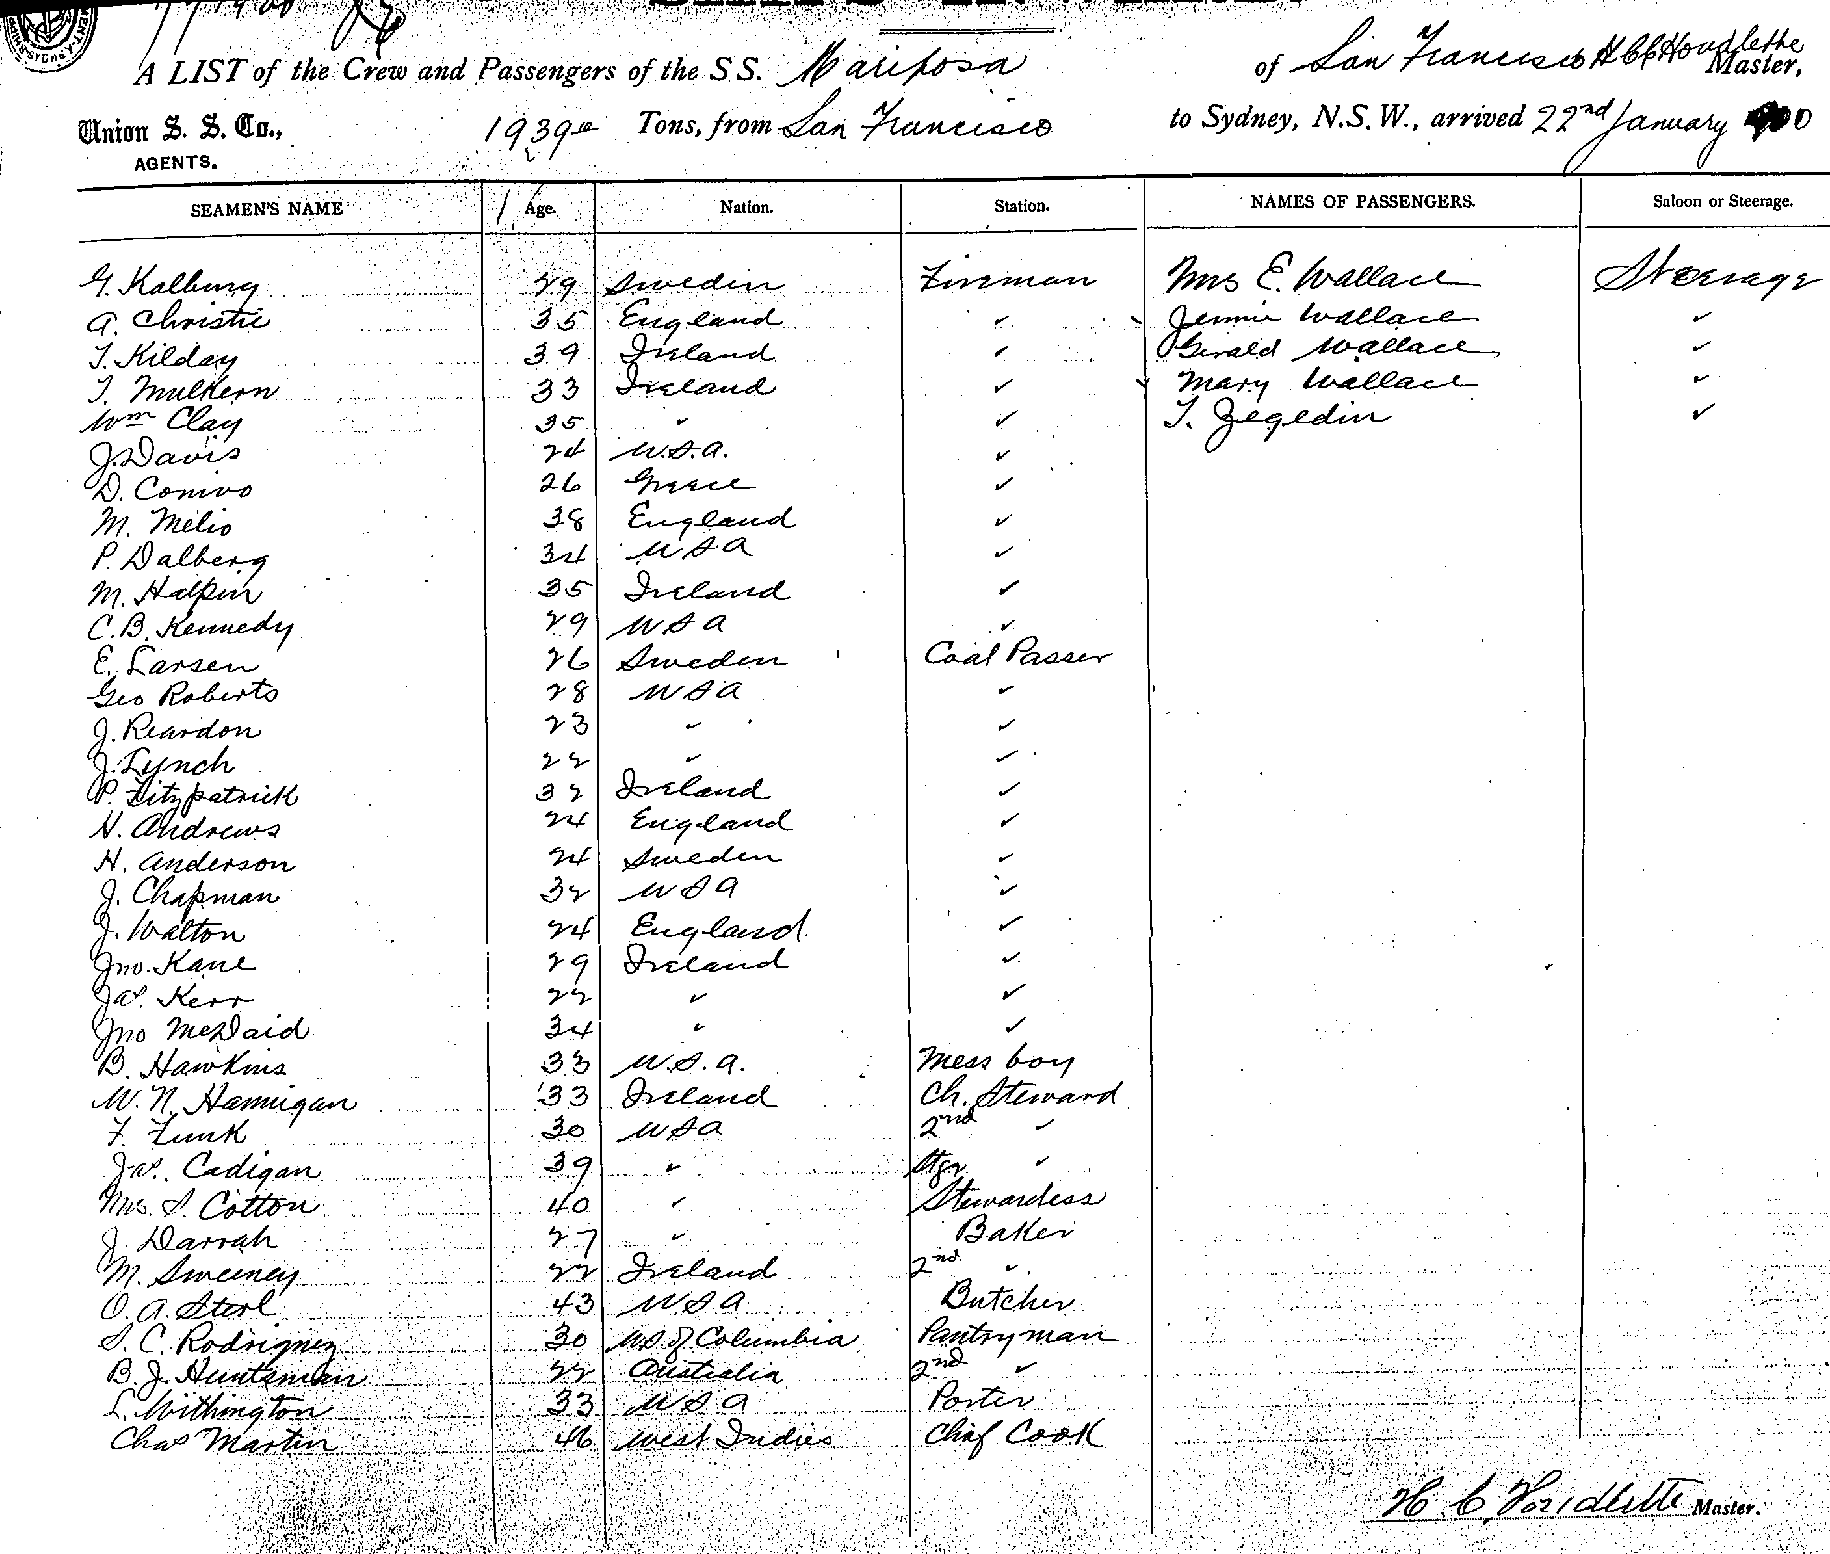 A LIST of the Crew and Passengers of the S.S. Mariposa of San Francisco H C Houdlette Master,
Union S. S. Co., AGENTS. 1939 Tons, from San Francisco to Sydney, N.S.W., arrived 22nd January
SEAMEN'S NAME Age. Nation. Station. NAMES OF PASSENGERS. Saloon or Steerage.
G. Kalburg 29 Sweden Fireman Mrs E. Wallace Steerage
A. Christie 35 England ✓ Jennie Wallace ✓
T. Kilday 39 Ireland ✓ Gerald Wallace ✓
T. Mulkern 33 Ireland ✓ Mary Wallace ✓
Wm Clay 35 " ✓ T. Zegedin ✓
J. Davis 24 U.S.A. ✓
D. Conivo 26 Greece ✓
M. Melio 38 England ✓
P. Dalberg 34 USA ✓
M. Halpin 35 Ireland ✓
C. B. Kennedy 29 USA ✓
E. Larsen 26 Sweden Coal Passer
Geo Roberts 28 USA ✓
J. Reardon 23 " ✓
J. Lynch 22 " ✓
P. Fitzpatrick 32 Ireland ✓
H. Andrews 24 England ✓
H. Anderson 24 Sweden ✓
J. Chapman 32 USA ✓
J. Walton 24 England ✓
Jno. Kane 29 Ireland ✓
Jas. Kerr 22 " ✓
Jno McDaid 34 " ✓
B. Hawkins 33 U.S.A. Mess boy
W. N. Hannigan 33 Ireland Ch. Steward
F. Funk 30 USA 2nd "
Jas. Cadigan 39 " Stge "
Mrs. S. Cotton 40 " Stewardess
J. Darrah 27 " Baker
M. Sweeney 22 Ireland 2nd "
O. A. Sterl 43 USA Butcher
S. C. Rodriguez 30 US of Columbia Pantryman
B. J. Huntsman 22 Australia 2nd "
L. Withington 33 USA Porter
Chas Martin 46 West Indies Chief Cook
H. C. Houdlette Master.